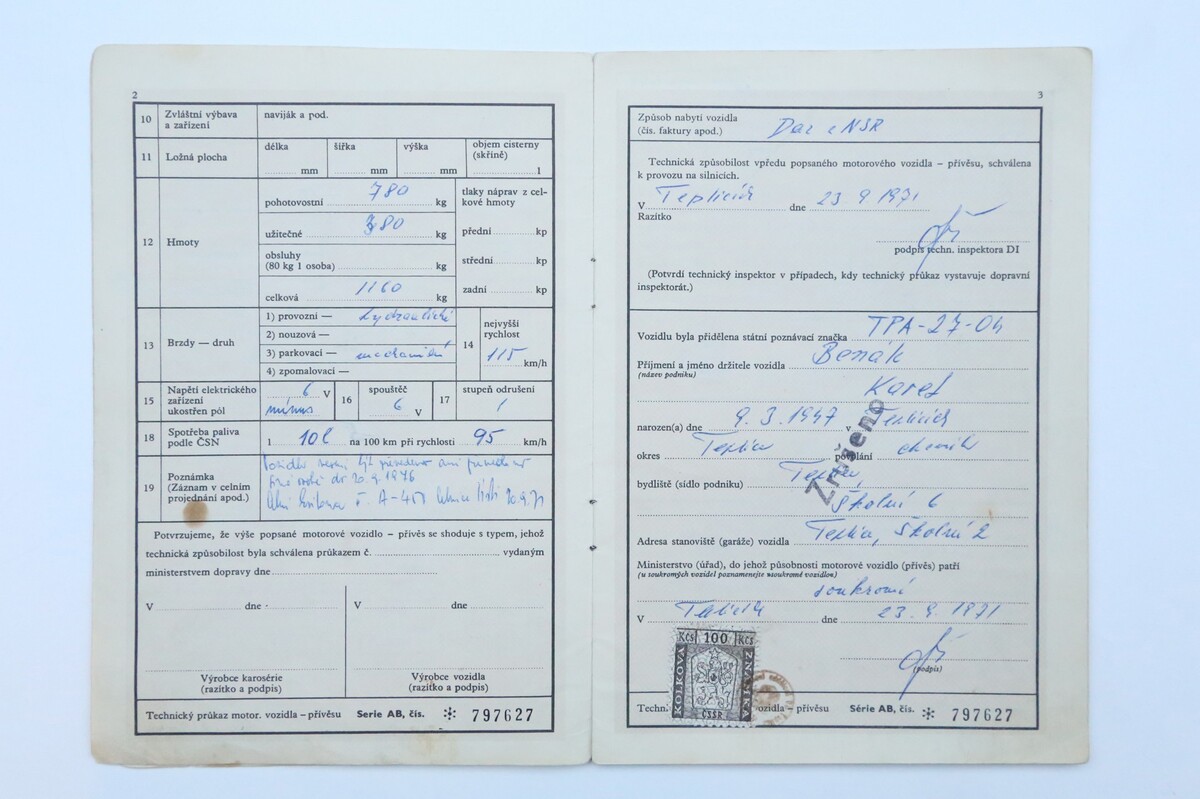 2
10 Zvláštní výbava a zařízení
naviják a pod.
11 Ložná plocha
délka mm
šířka mm
výška mm
objem cisterny (skříně) l
12 Hmoty
pohotovostní 780 kg
užitečné 380 kg
obsluhy (80 kg 1 osoba) kg
celková 1160 kg
tlaky náprav z celkové hmoty
přední kp
střední kp
zadní kp
13 Brzdy — druh
1) provozní — hydraulické
2) nouzová —
3) parkovací — mechanické
4) zpomalovací —
14 nejvyšší rychlost
115 km/h
15 Napětí elektrického zařízení
ukostřen pól
6 V
minus
16 spouštěč
6 V
17 stupeň odrušení
1
18 Spotřeba paliva podle ČSN
l 10l na 100 km při rychlosti 95 km/h
19 Poznámka
(Záznam v celním projednání apod.)
Vozidlo nesmí být převedeno ani
do 20.9.1976
A-451 20.9.71
Potvrzujeme, že výše popsané motorové vozidlo – přívěs se shoduje s typem, jehož
technická způsobilost byla schválena průkazem č. vydaným
ministerstvem dopravy dne
V dne
V dne
Výrobce karosérie
(razítko a podpis)
Výrobce vozidla
(razítko a podpis)
Technický průkaz motor. vozidla – přívěsu Serie AB, čís. 797627
3
Způsob nabytí vozidla
(čís. faktury apod.) Dar z NSR
Technická způsobilost vpředu popsaného motorového vozidla – přívěsu, schválena
k provozu na silnicích.
V Teplicích dne 23 9 1971
Razítko
podpis techn. inspektora DI
(Potvrdí technický inspektor v případech, kdy technický průkaz vystavuje dopravní
inspektorát.)
Vozidlu byla přidělena státní poznávací značka TPA-27-04
Příjmení a jméno držitele vozidla Benák
(název podniku)
Karel
narozen(a) dne 9.3.1947 v Teplicích
okres Teplice povolání chemik
bydliště (sídlo podniku) Teplice
Školní 6
Zrušeno
Adresa stanoviště (garáže) vozidla Teplice, Školní 2
Ministerstvo (úřad), do jehož působnosti motorové vozidlo (přívěs) patří
(u soukromých vozidel poznamenejte »soukromé vozidlo«)
soukromí
V dne 23.9.1971
(podpis)
Kčs 100 Kčs
KOLKOVÁ
ZNÁMKA
ČSSR
Techn. vozidla – přívěsu Serie AB, čís. 797627